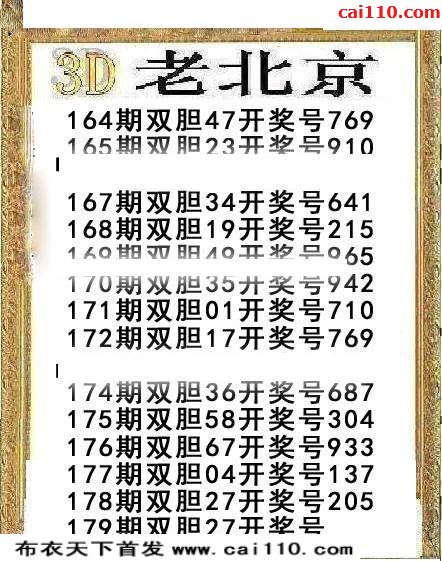 cai110.com
3D 老北京
164期双胆47开奖号769
165期双胆23开奖号910
167期双胆34开奖号641
168期双胆19开奖号215
169期双胆49开奖号965
170期双胆35开奖号942
171期双胆01开奖号710
172期双胆17开奖号769
174期双胆36开奖号687
175期双胆58开奖号304
176期双胆67开奖号933
177期双胆04开奖号137
178期双胆27开奖号205
179期双胆27开奖号
布衣天下首发 www.cai110.com